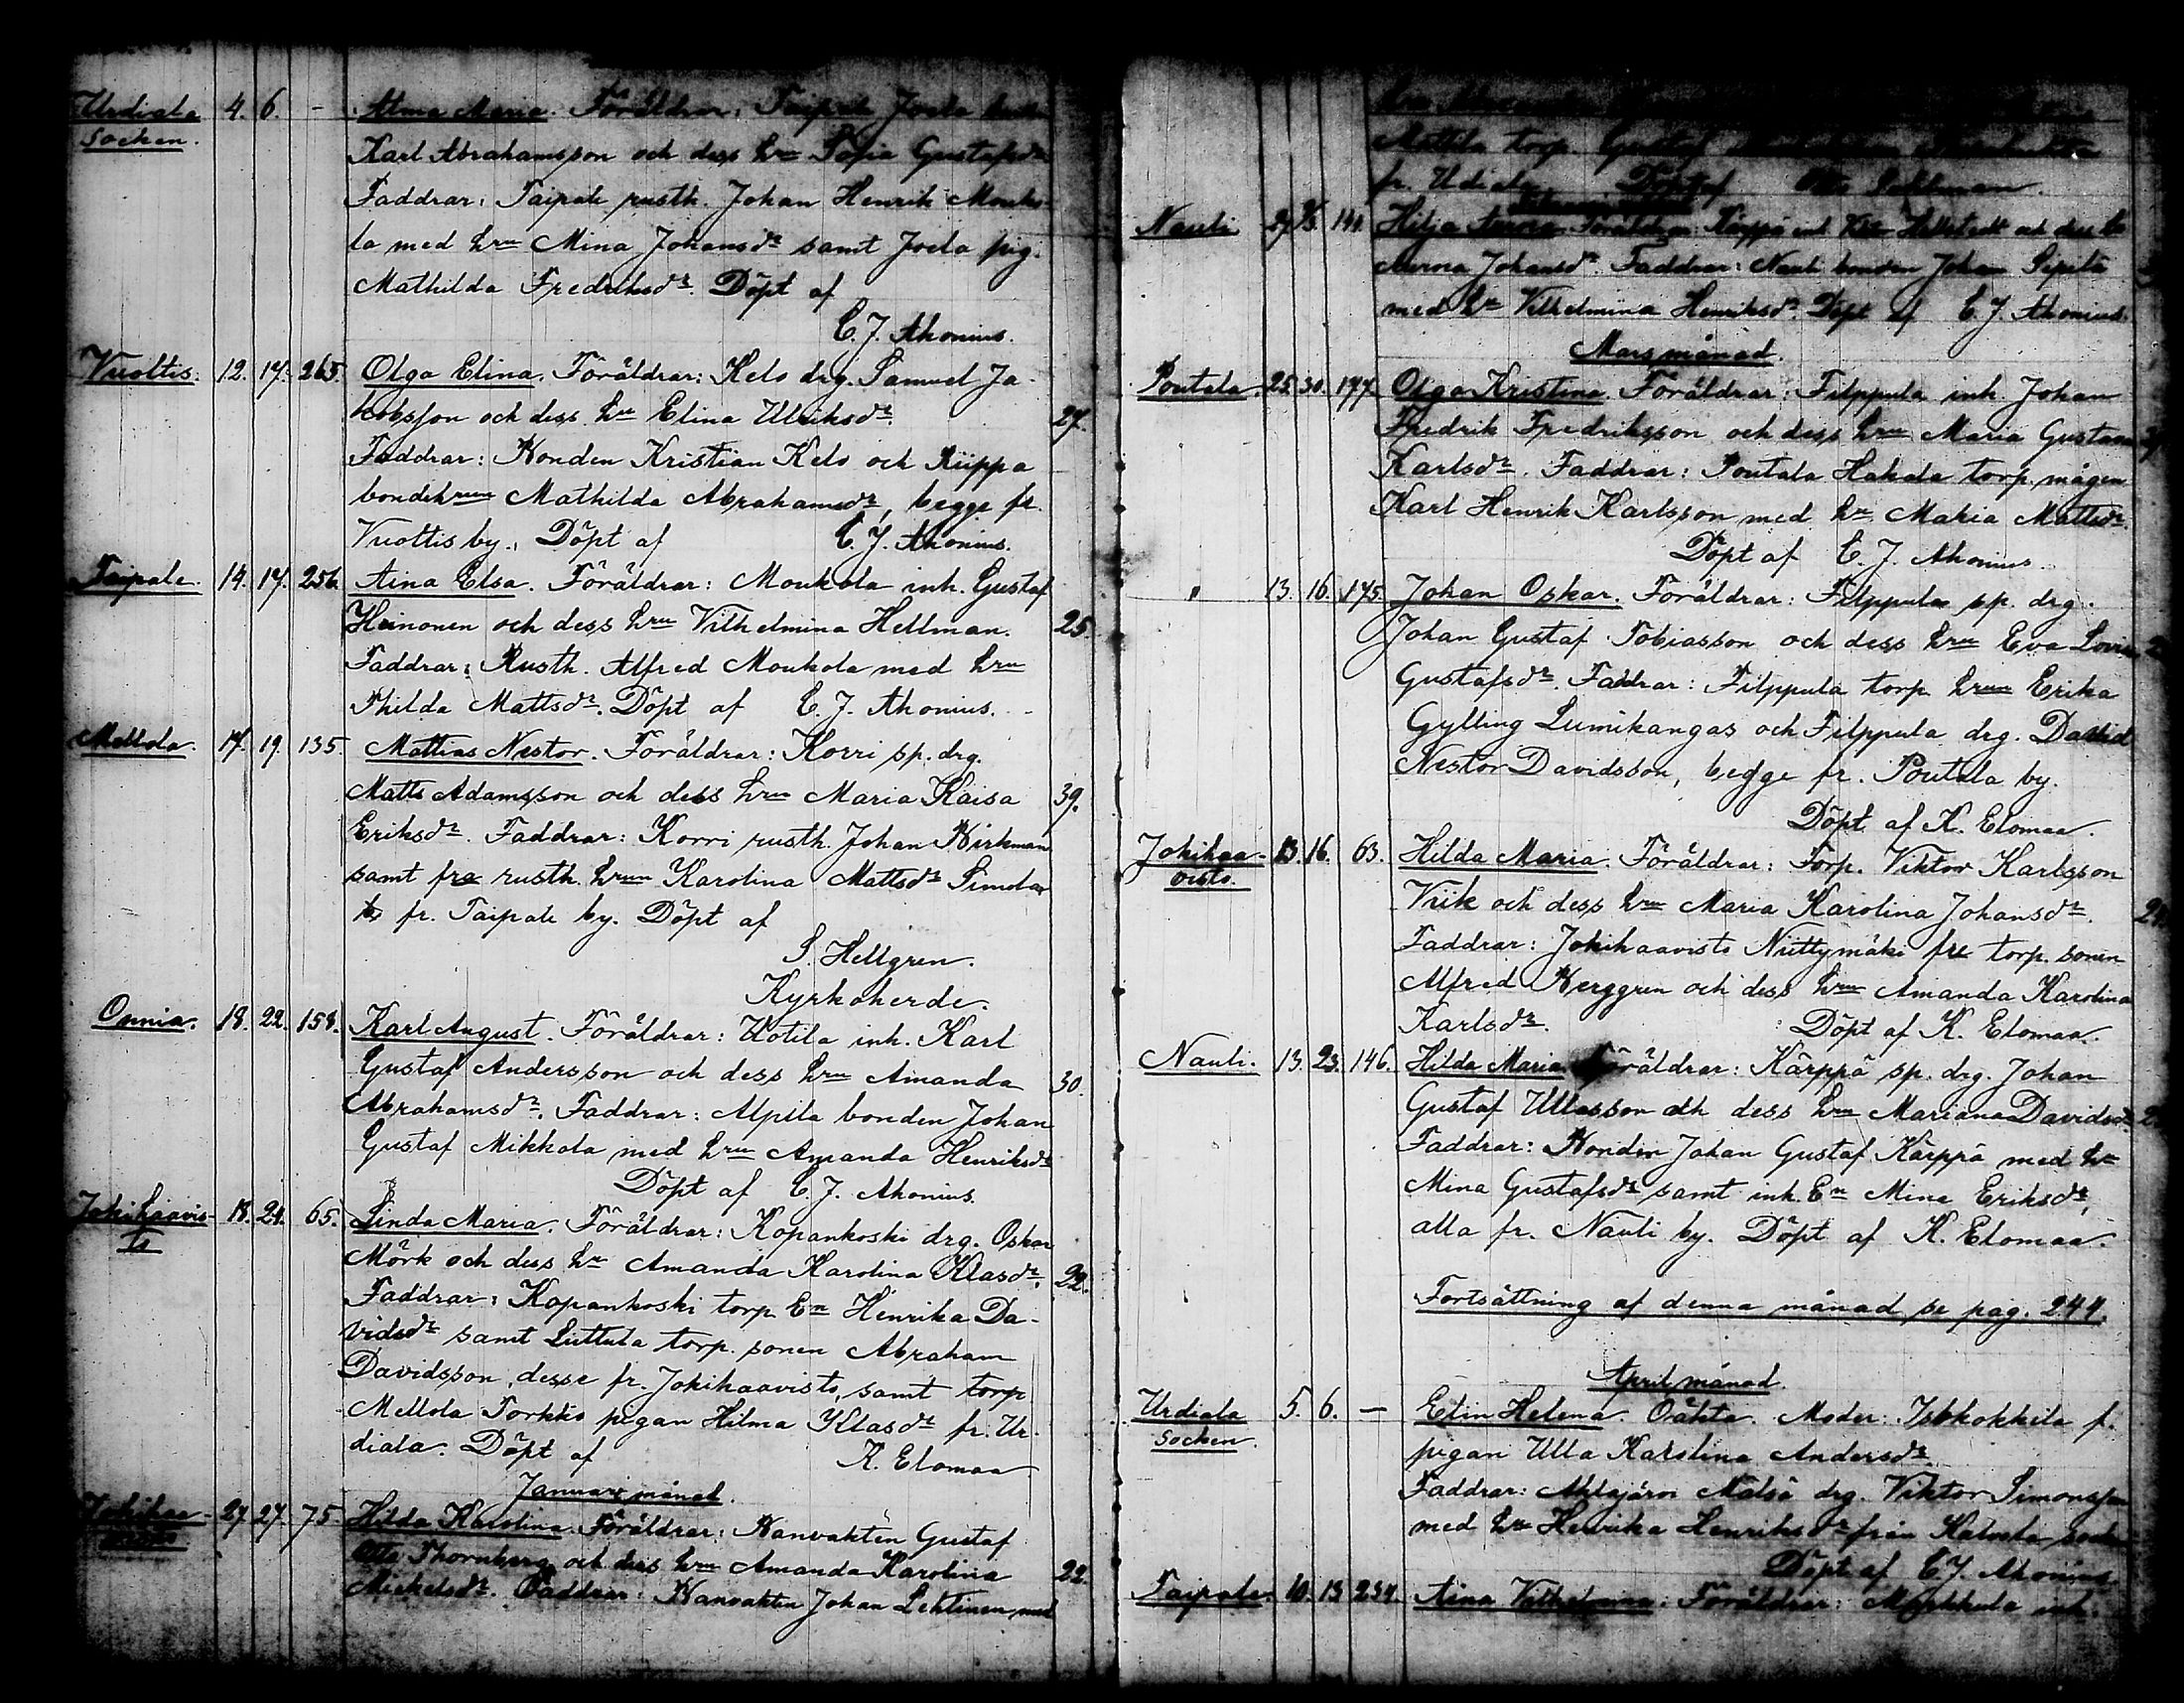 Urdiala 4. 6. - Alma Maria. Föräldrar: Taipale Joela
socken. Karl Abrahamsson och dess hru Sofia Gustafsdr
Faddrar: Taipale rusth. Johan Henrik Mouko-
la med hru Mina Johansdr samt Joela pig.
Mathilda Fredriksdr. Döpt af
C. J. Ahonius.
Vuoltis. 12. 17. 265. Olga Elina. Föräldrar: Kelo drg. Samuel Ja-
kobsson och dess hru Elina Ulriksdr. 27.
Faddrar: Bonden Kristian Kelo och Riippa
bondehrun Mathilda Abrahamsdr, begge fr.
Vuottis by. Döpt af C. J. Ahonius.
Taipale. 14. 17. 256. Aina Elsa. Föräldrar: Moukola inh. Gustaf
Heinonen och dess hru Vilhelmina Hellman. 25
Faddrar: Rusth. Alfred Moukola med hru
Thilda Mattsdr. Döpt af C. J. Ahonius. -
Mellola. 17. 19. 135. Mattias Nestor. Föräldrar: Korri sp. drg.
Matts Adamsson och dess hru Maria Kaisa 39.
Eriksdr. Faddrar: Korri rusth. Johan Birkman
samt fra rusth. hrun Karolina Mattsdr Simola
fr. Taipale by. Döpt af
S. Hellgren.
Kyrkoherde.
Onnia. 18. 22. 158. Karl August. Föräldrar: Uotila inh. Karl
Gustaf Andersson och dess hru Amanda 30.
Abrahamsdr. Faddrar: Alpila bonden Johan
Gustaf Mikkola med hru Amanda Henriksdr
Döpt af C. J. Ahonius.
Jokihaavis- 18. 24. 65. Linda Maria. Föräldrar: Kopankoski drg. Oskar
to Mörk och dess hr Amanda Karolina Klasdr. 22.
Faddrar: Kopankoski torp. En Henrika Da-
vidsdr samt Liuttula torp. sonen Abraham
Davidsson, desse fr. Jokihaavisto, samt torp
Mellola Torkko pigan Hilma Klasdr fr. Ur-
diala. Döpt af K. Elomaa
Januari månad.
Jokihaa- 27. 27. 75. Hilda Karolina. Föräldrar: Banvakten Gustaf
visto Otto Thornberg och dess hru Amanda Karolina 22.
Mickelsdr. Faddrar: Banvakten Johan Lehtinen med
Mattila torp. Gustaf
fr. Udiala. Döpt af Otto Sahlman.
Nauli 144. Hilja Anna. Föräldrar: Kärppä inh. Hellstedt och dess hr
Anna Johansdr. Faddrar: Nauli bonden Johan Sipilä
med hru Vilhelmina Henriksdr. Döpt af C. J. Ahonius.
Mars månad.
Poutala. 25. 30. 177. Olga Kristina. Föräldrar: Filppula inh. Johan
Fredrik Fredriksson och dess hru Maria Gustava
Karlsdr. Faddrar: Poutala Hakala torp. mågen
Karl Henrik Karlsson med hr. Maria Mattsdr.
Döpt af C. J. Ahonius.
" 13. 16. 175. Johan Oskar. Föräldrar: Filppula sp. drg.
Johan Gustaf Tobiasson och dess hru Eva Lovisa
Gustafsdr. Faddrar: Filppula torp. hrun Erika
Gylling Lumikangas och Filppula drg. David
Nestor Davidsson, begge fr. Poutala by.
Döpt af K. Elomaa.
Jokihaa- 13. 16. 63. Hilda Maria. Föräldrar: Torp. Viktor Karlsson
visto. Viik och dess hru Maria Karolina Johansdr. 24.
Faddrar: Jokihaavisto Niittymäki fre torp. sonen
Alfred Berggren och dess hru Amanda Karolina
Karlsdr. Döpt af K. Elomaa.
Nauli. 13. 23. 146. Hilda Maria. Föräldrar: Kärppä sp. drg. Johan
Gustaf Ullasson och dess hru Mariana Davidsdr
Faddrar: Bonden Johan Gustaf Kärppä med hr
Mina Gustafsdr samt inh. En Mina Eriksdr,
alla fr. Nauli by. Döpt af K. Elomaa.
Fortsättning af denna månad se pag. 244.
April månad.
Urdiala 5. 6. - Elin Helena. Oäkta. Moder: Isokokkila f.
socken. pigan Ulla Karolina Andersdr.
Faddrar: Ahlajärvi Mälsä drg. Viktor Simonsson
med hr Henrika Henriksdr från Kalvola socken
Döpt af C. J. Ahonius
Taipale. 10. 13 234. Aina Vilhelmina. Föräldrar: Markkula inh.